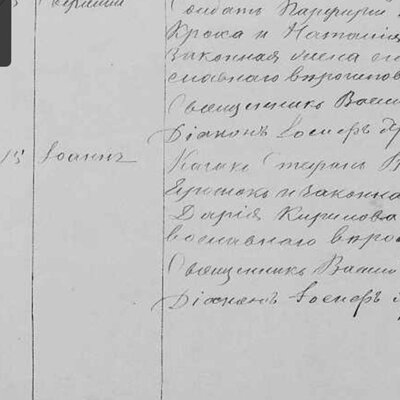 Солдатъ Парфирій
Кроха и Наталія
законная жена его
славнаго вѣроиспов
Священникъ Васи
Діаконъ Іосифъ
15 Іоаннъ Казакъ Стефанъ В
и законна
Дарія Кирилова
вославнаго вѣро
Священникъ Васи
Діаконъ Іосифъ